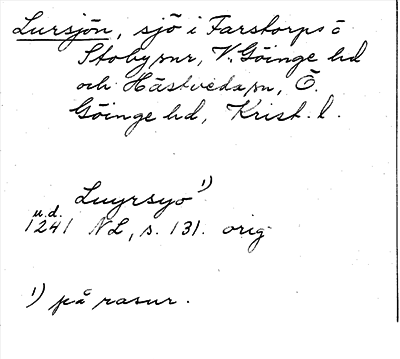 Lursjön, sjö i Farstorps o
Stoby snr, V. Göinge hd
och Hästveda sn, Ö.
Göinge hd, Krist. l.
Luyrsyo 1)
u.d.
1241 NL, s. 131. orig
1) på rasur.